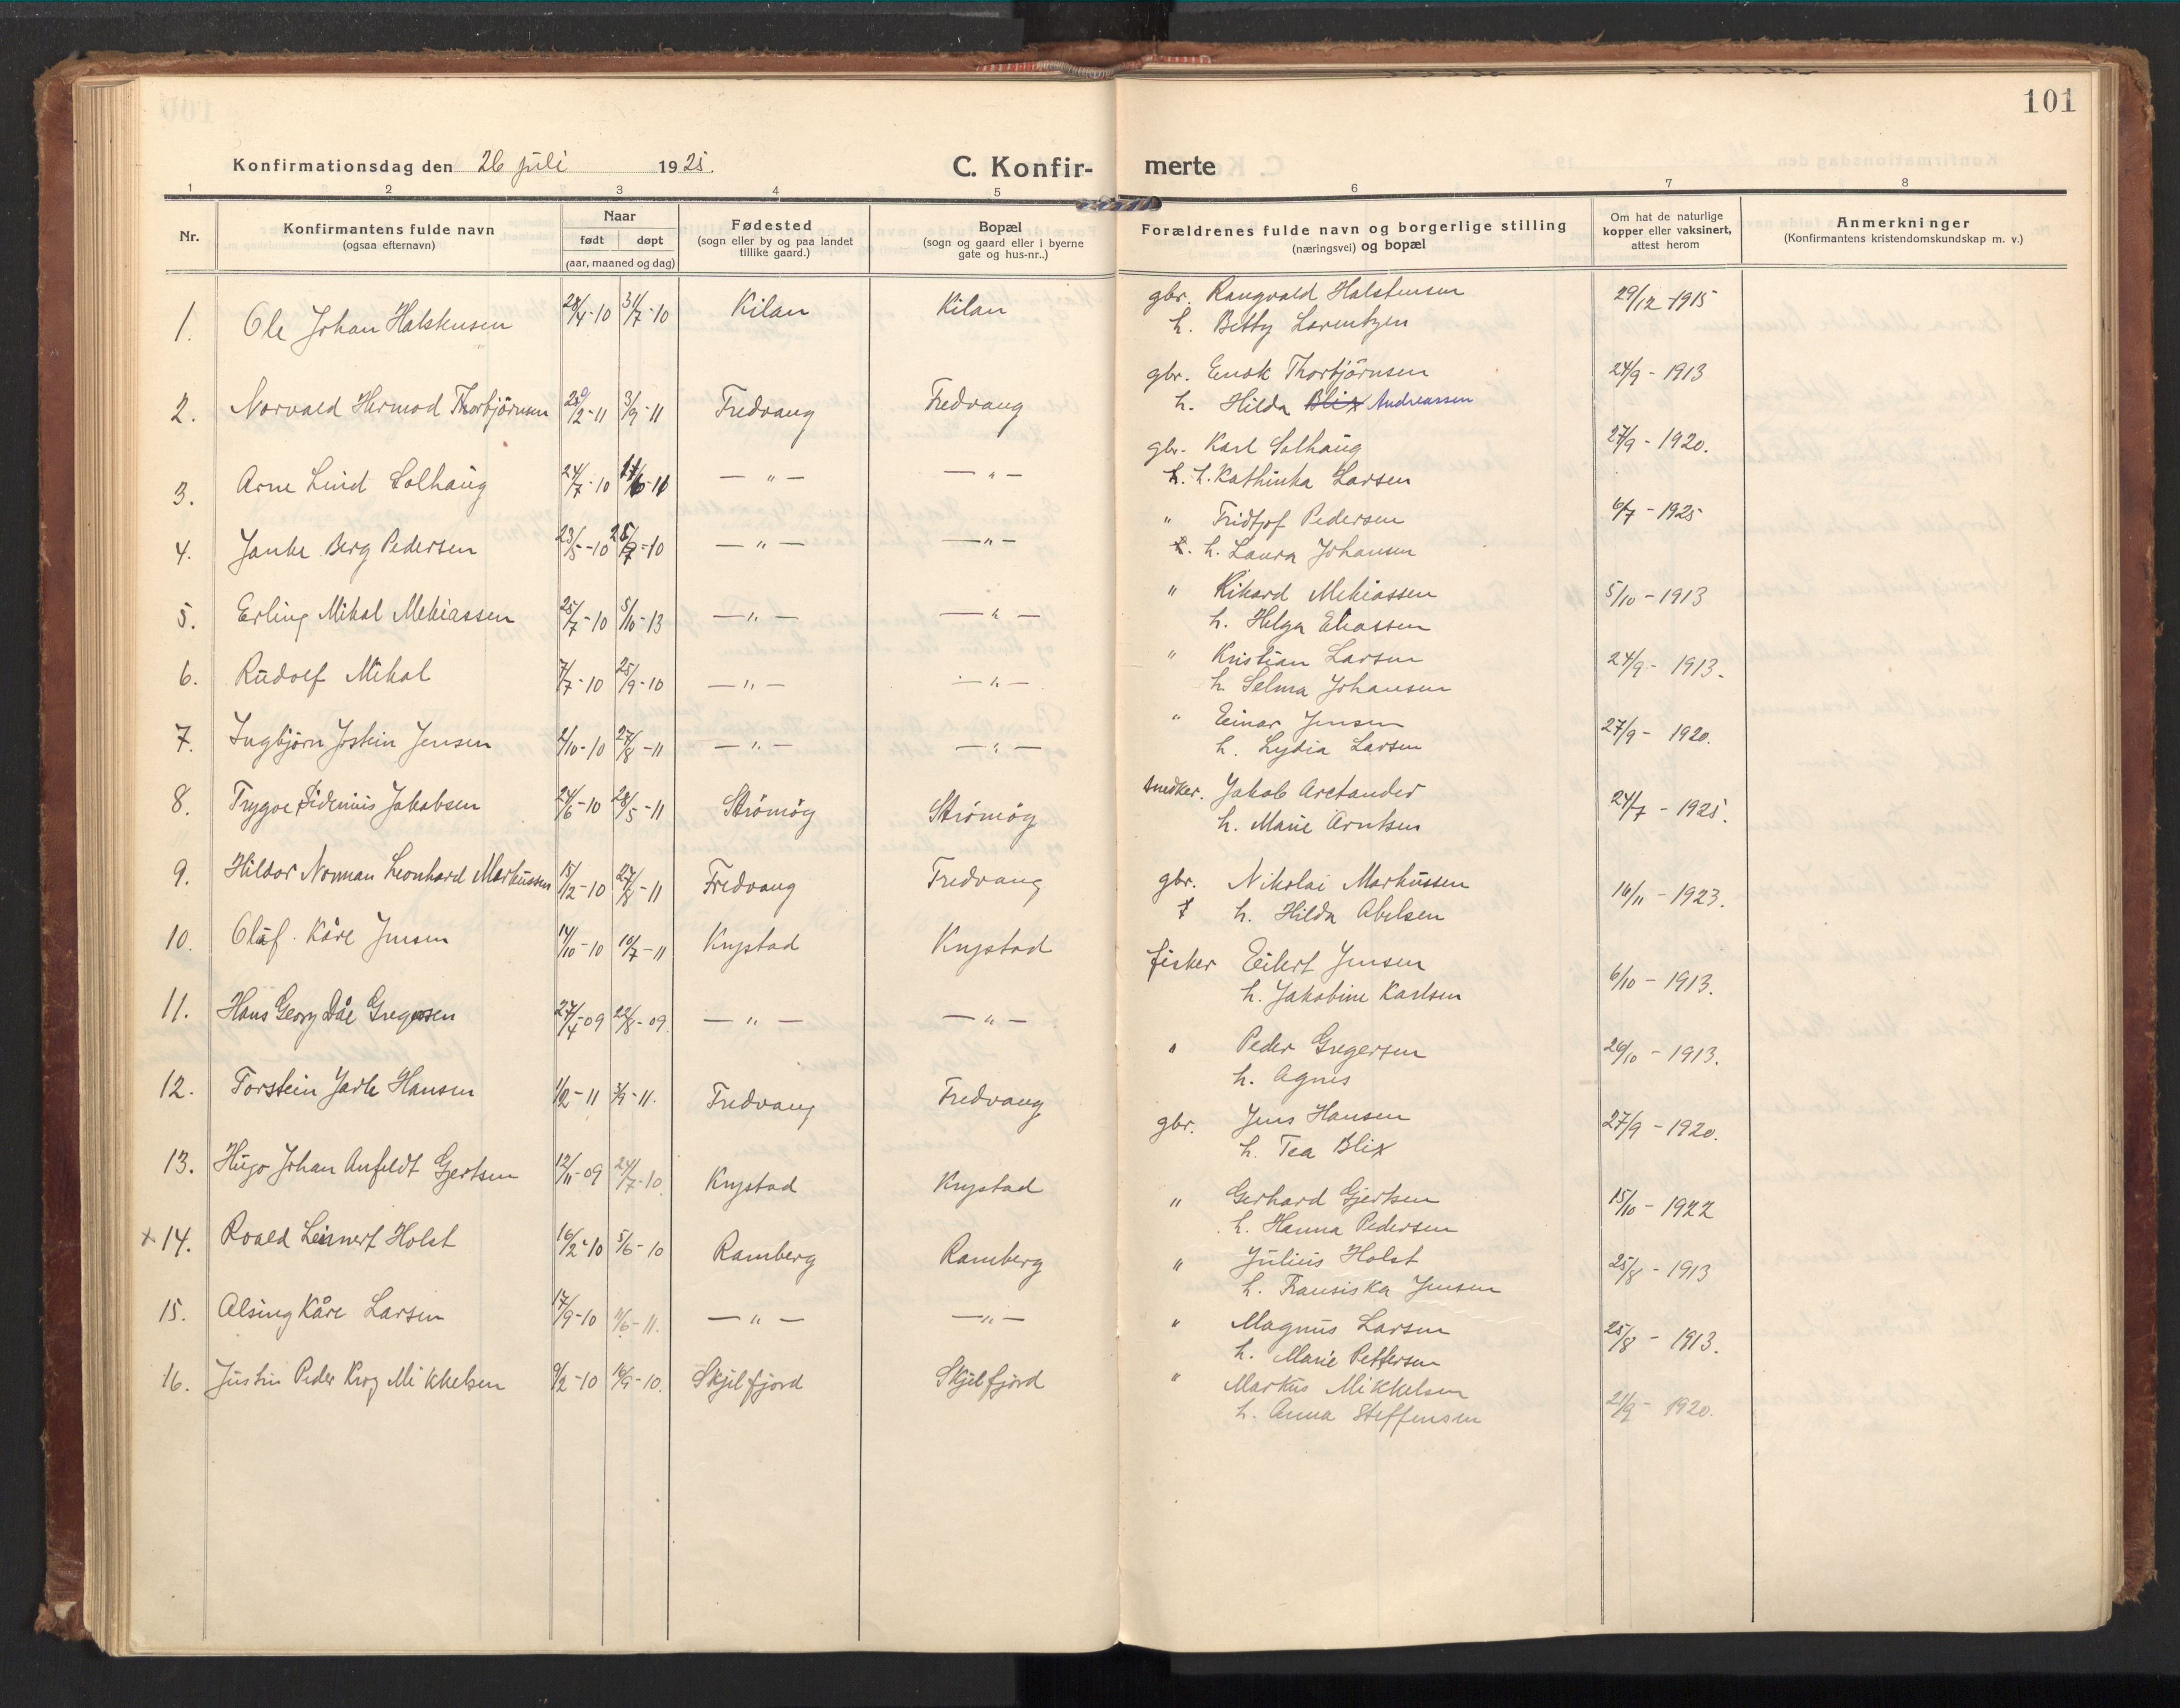 101
Konfirmationsdag den 26 juli 1925.
C. Konfirmerte
1 2 3 4 5 6 7 8
Nr. | Konfirmantens fulde navn (ogsaa efternavn) | Naar født døpt (aar, maaned og dag) | Fødested (sogn eller by og paa landet tillike gaard.) | Bopæl (sogn og gaard eller i byerne gate og hus-nr..) | Forældrenes fulde navn og borgerlige stilling (næringsvei) og bopæl | Om hat de naturlige kopper eller vaksinert, attest herom | Anmerkninger (Konfirmantens kristendomskundskap m. v.)
1. Ole Johan Halstensen 28/4-10 31/7-10 Kilan Kilan gbr. Rangvald Halstensen 29/12-1915
h. Betty Lorentzen
2. Norvald Hermod Thorbjörnsen 20/2-11 3/9-11 Fredvang Fredvang gbr. Enok Thorbjörnsen 24/9-1913
h. Hilda Blix Andreassen
3. Arne Lind Solhaug 24/7-10 — " — — " — gbr. Karl Solhaug 27/9-1920.
h. Kathinka Larsen
4. Janke Berg Pedersen 23/5-10 — " — — " — " Fridtjof Pedersen 6/7-1925
h. Laura Johansen
5. Erling Mikal Mekiassen 25/7-10 5/10-13 — " — — " — " Rikard Mekiassen 5/10-1913
h. Helga Eliassen
6. Rudolf Mikal 7/7-10 25/9-10 — " — — " — " Kristian Larsen 24/9-1913.
h. Selma Johansen
7. Ingbjørn Jostein Jensen 2/10-10 27/8-11 — " — — " — " Einar Jensen 27/9-1920.
h. Lydia Larsen
8. Trygve Sidenius Jakobsen 24/6-10 28/5-11 Strömöy Strömöy snedker. Jakob Arctander 24/7-1925.
h. Marie Arntsen
9. Hildor Norman Leonhard Markussen 15/12-10 27/8-11 Fredvang Fredvang gbr. Nikolai Markussen 16/11-1923.
h. Hilda Abelsen
10. Oluf Kåre Jensen 14/10-10 10/7-11 Krystad Krystad fisker Eilert Jensen 6/10-1913.
h. Jakobine Karlsen
11. Hans Georg Dåe Gregersen 27/4-09 22/8-09. — " — — " — " Peder Gregersen 26/10-1913.
h. Agnes
12. Torstein Jarle Hansen 1/2-11 3/9-11. Fredvang Fredvang gbr. Jens Hansen 27/9-1920.
h. Tea Blix
13. Hugo Johan Anfeldt Gjertsen 12/11-09 24/7-10 Krystad Krystad " Gerhard Gjertsen 15/10-1922
h. Hanna Pedersen
x 14. Roald Leinert Holst 16/2-10 5/6-10 Ramberg Ramberg " Julius Holst 25/8-1913
h. Fransiska Jensen
15. Alsing Kåre Larsen 17/9-10 11/6-11. — " — — " — " Magnus Larsen 25/8-1913.
h. Marie Pettersen
16. Justin Peder Krog Mikkelsen 9/2-10 Skjelfjord Skjelfjord " Markus Mikkelsen 21/9-1920.
h. Anna Steffensen